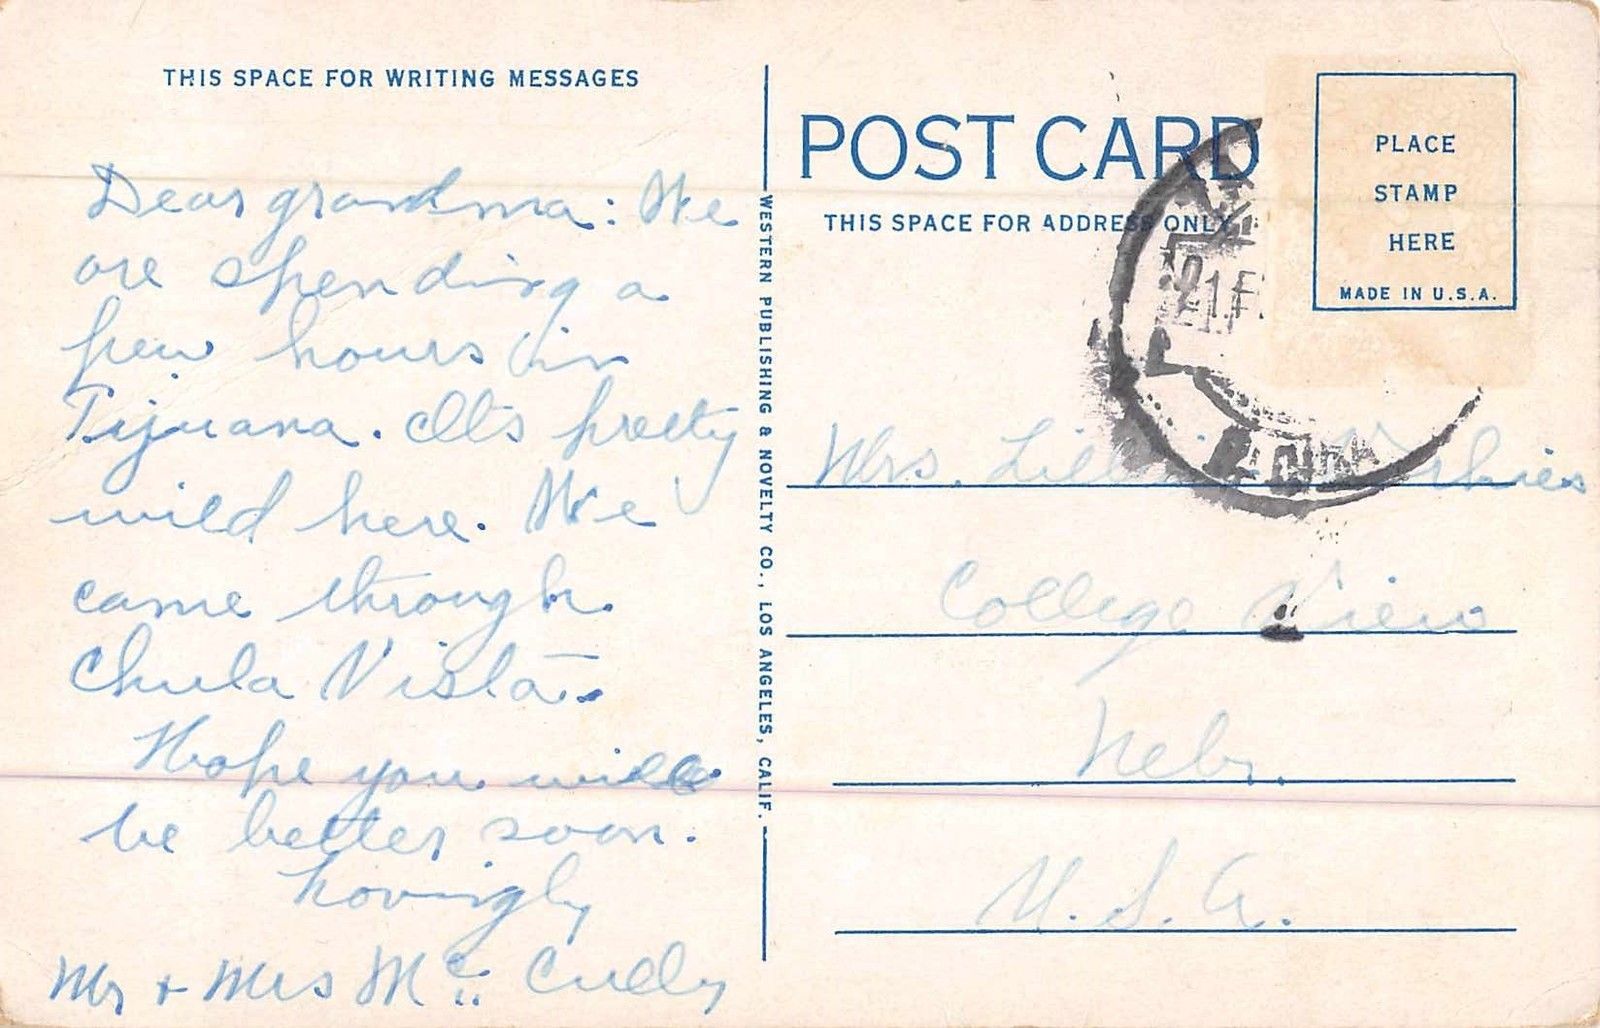 THIS SPACE FOR WRITING MESSAGES
Dear grandma: We
are spending a
few hours in
Tijuana. It's pretty
wild here. We
came through
Chula Vista.
Hope you will
be better soon.
Lovingly
Mr + Mrs Mc Cully
WESTERN PUBLISHING & NOVELTY CO., LOS ANGELES, CALIF.
POST CARD
THIS SPACE FOR ADDRESS ONLY
PLACE
STAMP
HERE
MADE IN U.S.A.
Mrs.
College View
Nebr.
U. S. A.